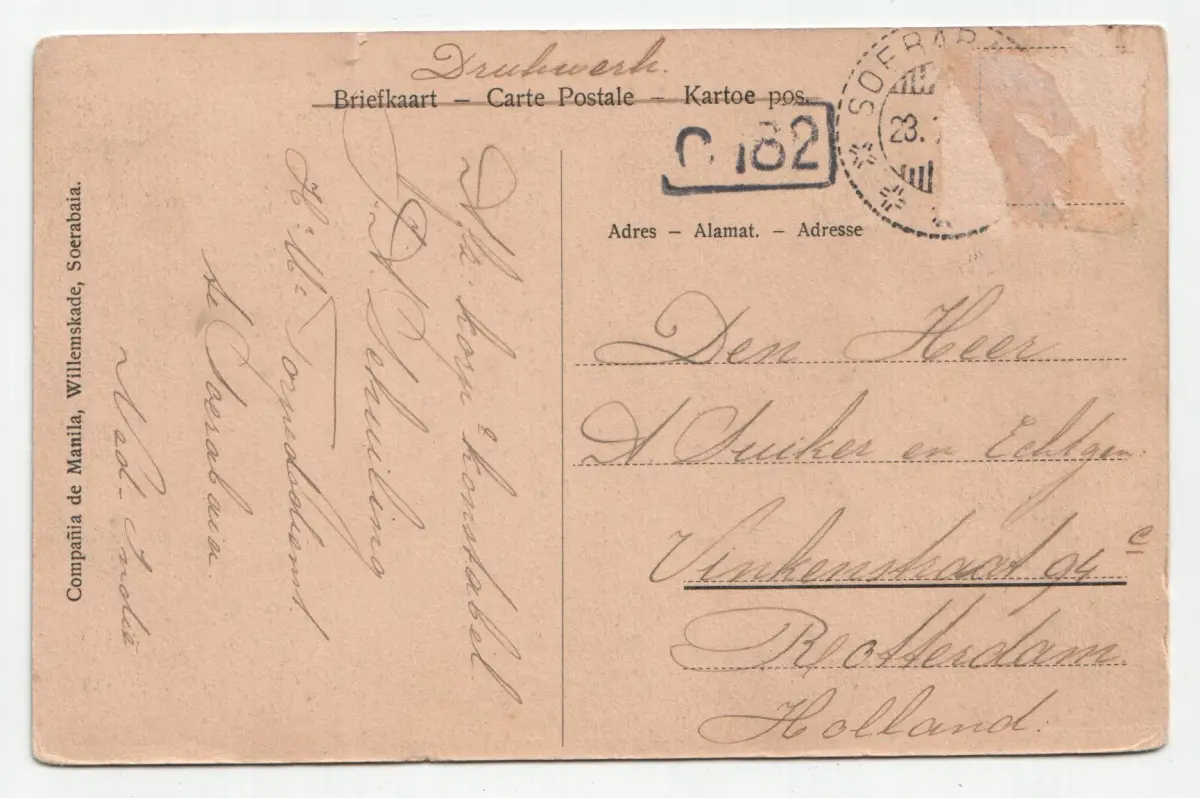 Drukwerk.
Briefkaart – Carte Postale – Kartoe pos.
C 182
SOERABA
23.
Adres – Alamat. – Adresse
Den Heer
A Suiker en Echtgen.
Vinkenstraat 94 c
Rotterdam.
Holland.
korpl konstabel
A. Schuiling
Torpedodienst.
te Soerabaia.
Ned-Indië
Compañia de Manila, Willemskade, Soerabaia.